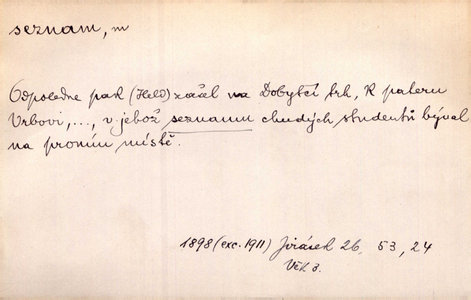 seznam, m
Odpoledne pak (Held) zašel na Dobytčí trh, k pateru
Vrbovi, ..., v jehož seznamu chudých studentů býval
na prvním místě.
1898 (exc. 1911) Jirásek 26, 53, 24
Věk 3.